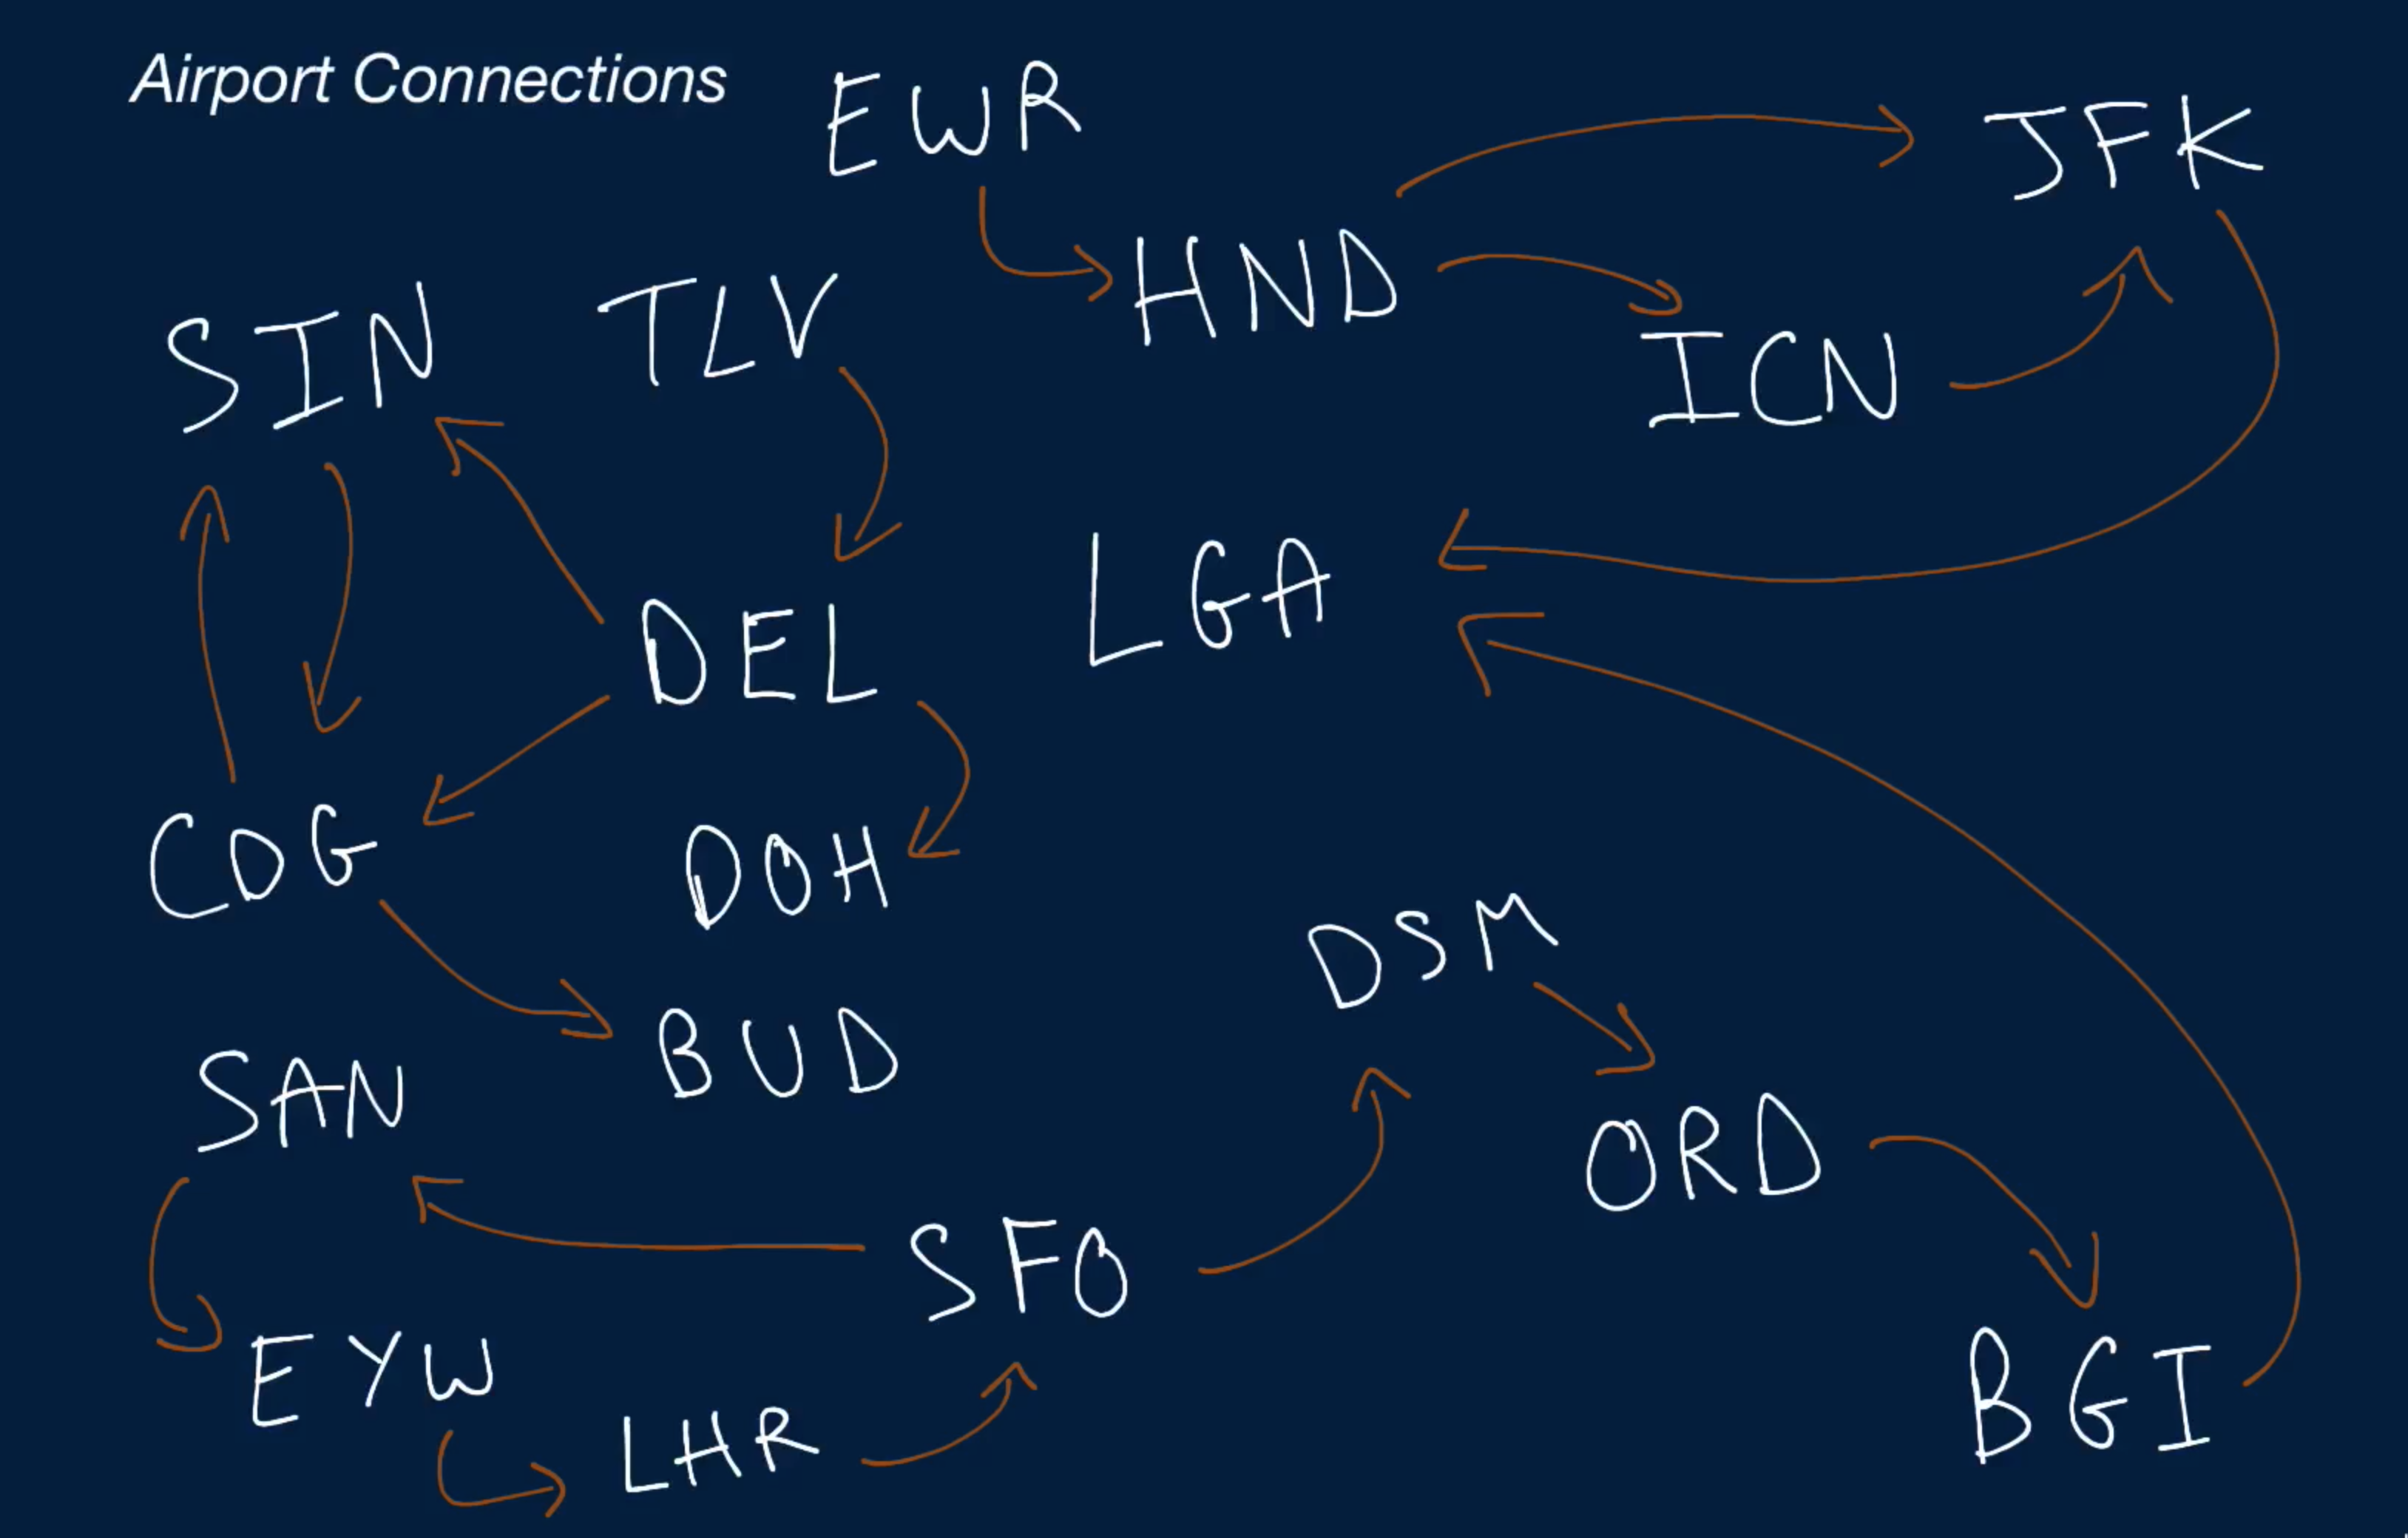 Airport Connections
EWR
JFK
HND
SIN
TLV
ICN
LGA
DEL
CDG
DOH
DSM
BUD
SAN
ORD
SFO
EYW
LHR
BGI